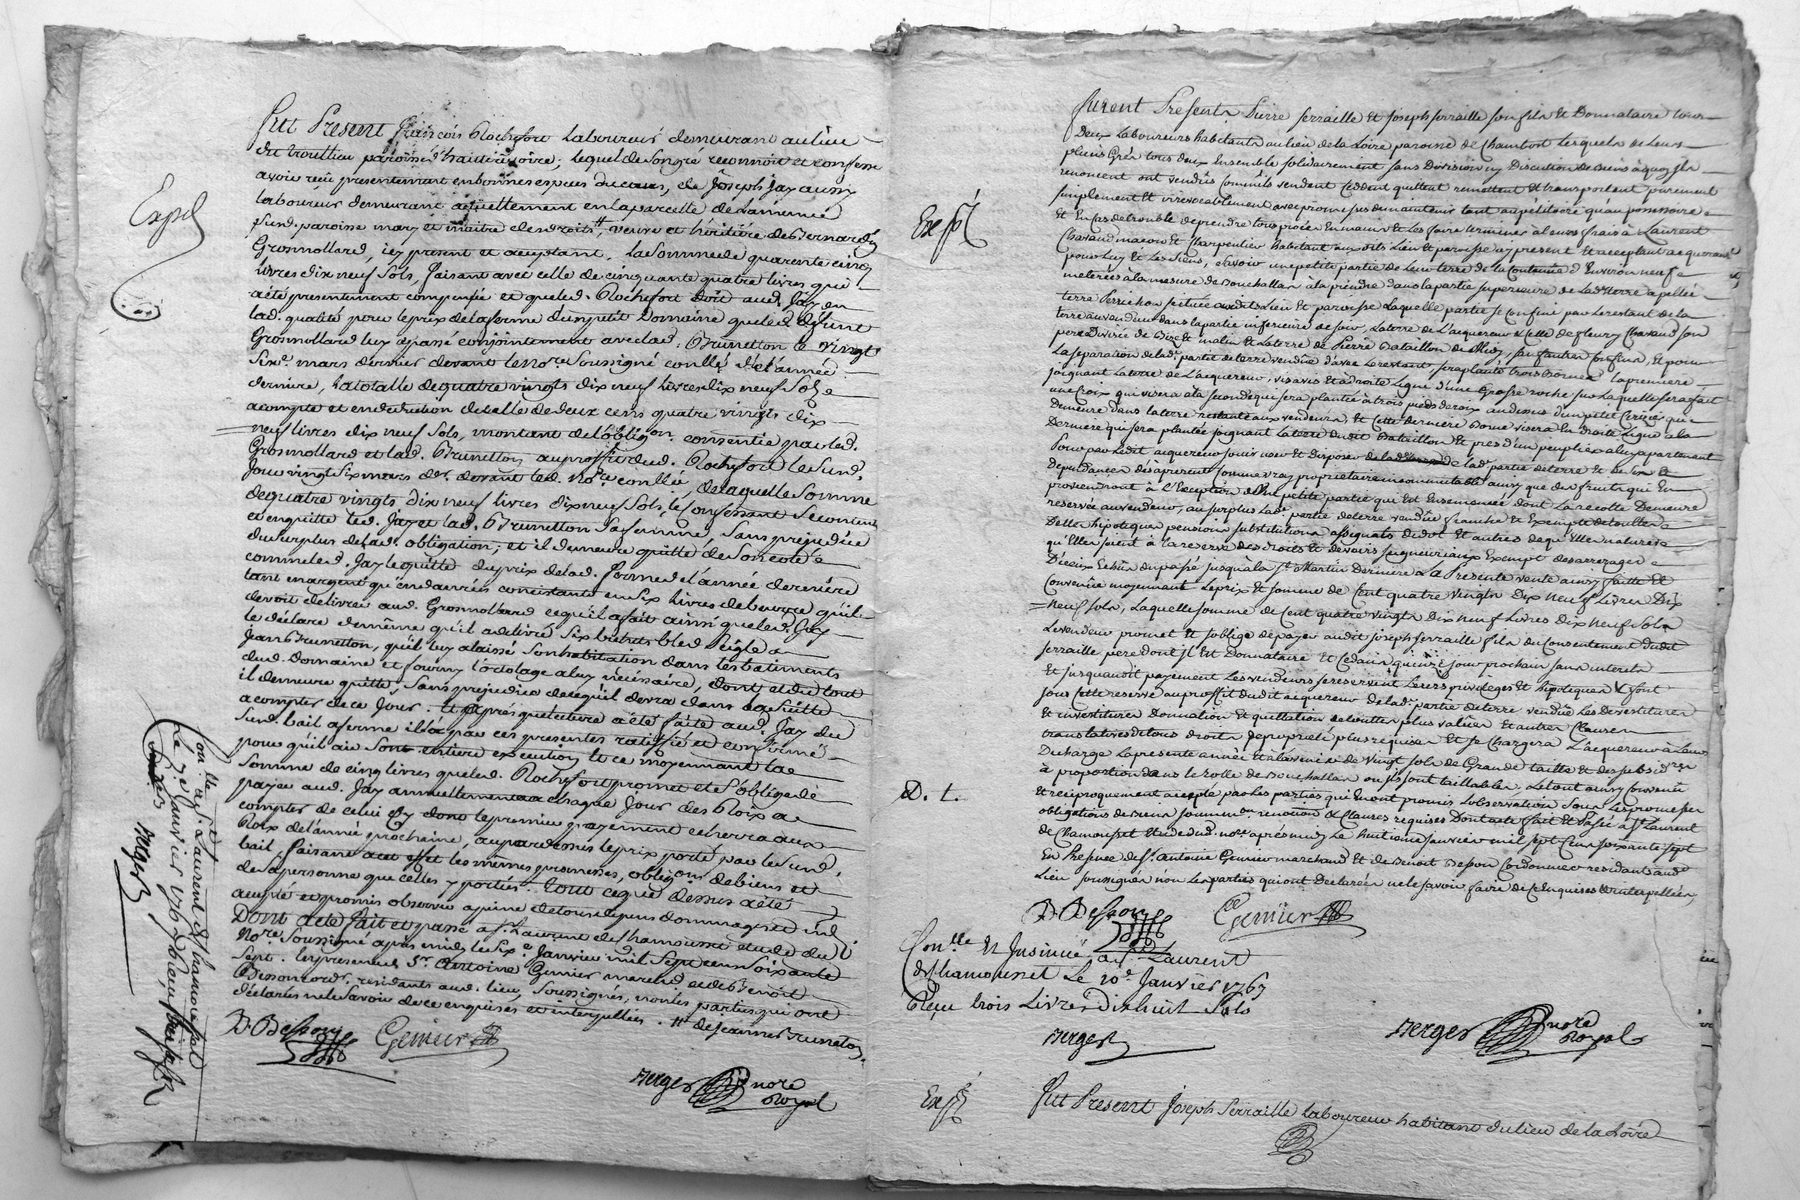 Fut Present François Rochefort Laboureur demeurant au lieu
du trouilleu paroisse d'hauterivoire, lequel de son gré reconnoit et confesse
avoir reçu presentement en bonnes especes du cours, de Joseph Jay aussy
laboureur demeurant actuellement en la parcelle de
Susd. paroisse mary et maitre des droits #, veuve et héritière de Bernardin
Grosmollard, icy present et acceptant. la somme de quarente cinq
livres dix neuf sols, faisant avec celle de cinquante quatre livres qui
a été presentement compensée et que led. Rochefort doit aud. Jay en
lad. qualité pour le prix de la ferme d'un petit Domaine que led. défunt
Grosmollard luy a passé conjointement avec lad. Brunetton le vingt
six.e mars dernier devant le no.re soussigné conllé d. l'année
derniere, la totalle de quatre vingts dix neuf livres dix neuf sols
acompte et en deduction de celle de deux cens quatre vingts dix
neuf livres dix neuf sols, montant de l'oblig.on consentie par led.
Grosmollard et lad. Brunetton au proffit dud. Rochefort le susd.
Jour vingt six mars d.er devant led. no.re conllée, de laquelle somme
de quatre vingts dix neuf livres dix neuf sols, le confessant se contente
et en quitte led. Jay et lad. Brunetton sa femme, sans prejudice
du surplus de lad. obligation, et il demeure quitte de son coté
comme led. Jay le quitte du prix de lad. ferme de l'année derniere
tant en argent qu'en denrées consistants en six livres de beurre qu'il
devoit delivrer aud. Grosmollard ce qu'il a fait ainsi que led. Jay
le déclare de même qu'il a delivré six bichets bled seigle a
Jean Brunetton, qu'il luy a laissé son habitation dans les batiments
dud. Domaine et fourny l'ortolage a luy nécessaire, dont et du tout
il demeure quitte, sans prejudice de ce qu'il devra dans la suitte
a compter de ce jour. et après que lecture a été faite aud. Jay du
susd. bail a ferme il l'a par ces presentes ratiffié et confirmé
pour qu'il aie son entiere execution et ce moyennant la
somme de cinq livres que led. Rochefort promet et s'oblige de
payer aud. Jay annuellement a chaque jour des Rois a
compter de celui cy dont le premier payement echerra aux
Rois de l'année prochaine, au par dessus le prix porté par le susd.
bail, faisant a cet effet les mêmes promesses, obligaons de biens et
de sa personne que celles y portés. tout ce que dessus a été
accepté et promis observer a peine de tous depens dommages et int.
Dont acte fait et passé a S.t Laurent de Chamousset etude du d.
No.re soussigné après midy le six.e Janvier mil sept cens soixante
sept. en presence de S.r Antoine Genier march.d et de Benoit
Besson cord.r residants aud. lieu, soussignés, non les parties qui ont
déclarées ne le savoir de ce enquises et interpellées. # de Jeanne Brunetton.
B. Besson Genier
Berger no.re Royal
Expéd
Con.lle a S.t Laurent de Chamousset
Le 7.e Janvier 1767 Reçu treize s.
Berger
Furent Presents Pierre Serraille et Joseph Serraille son fils et Donnataire tous
deux Laboureurs habitants au lieu de la Loire paroisse de Chambost Lesquels de Leurs
pleins Gréz tous deux Ensemble solidairement sans Division ny Discution de biens à quoy ils
renoncent ont vendûs comm'ils vendent Cedent quittent remettent et transportent purement
simplement Et irrevocablement avec promesses de maintenir tant au pétitoire qu'au possessoire
et En cas de trouble de prendre tous procès En main et Les faire terminer à leurs frais à Laurent
Chavand maçon et Charpentier habitant aux dits Lieu et paroisse icy present et acceptant acquereur
pour Luy et Les Siens, sçavoir une petite partie de Leur terre de la Contenue d'Environ neuf
meterées à la mesure de Souchallan à la prendre dans la partie superieure de Lad.e terre apellée
terre Perrichon scituée audit Lieu et paroisse Laquelle partie se Confine par Le restant de la
terre au vendeur dans la partie inferieure de soir, La terre de l'acquereur et Celle de fleury Chavand son
pere Divisée de bize et matin et La terre de Pierre Bataillon de Midy, sauf autres Confins, Et pour
La separation de lad.e partie de terre vendüe d'avec Le restant sera planté trois bornes La premiere
joignant La terre de L'acquereur, vis avis Et a droite Ligne d'une Grosse roche sur Laquelle sera fait
une Croix qui visera à la seconde qui sera plantée à trois pieds de roi au dessus d'un petit Cerizié qui
Demeure dans La terre restante aux vendeurs Et Cette derniere Borne visera En droite Ligne a la
Derniere qui sera plantée joignant La terre du dit Bataillon Et près d'un peuplier a luy apartenant
Pour par Ledit acquereur jouir user et disposer de lad.e partie de terre et de ses
Dependances dès a present Comme vray proprietaire incommutable ainsy que des fruits qui En
proviendront à l'Exception d'une petite partie qui Est Ensemencée dont La recolte Demeure
reservée au vendeur, au surplus Lad.e partie de terre vendüe franche et Exempte de toutes
Dettes hipoteques pensions substitutions assignats de dot Et autres de quelle nature
qu'Elles soient à La reserve des droits et devoirs seigneuriaux Exempt des arrerages
D'iceux Echûs du passé jusqu'à la S.t Martin Derniere a La Presente vente ainsy faitte Et
Convenüe moyennant Le prix Et somme de Cent quatre vingts Dix neuf Livres Dix
neuf sols, Laquelle somme de Cent quatre vingts Dix neuf Livres Dix neuf sols
Le vendeur promet Et s'oblige de payer audit Joseph Serraille fils du Consentement dudit
Serraille pere dont il Est Donnataire Et Ce dans quinze jour prochain sans interets
Et jusqu'audit payement Les vendeurs se reservent Leurs privileges Et hipoteques Et sont
sous Cette reserve au proffit dudit acquereur de lad.e partie de terre vendüe Les Devestitures
Et investitures Donnation et quittation de toutes plus values Et autres Clauses
translatives de tous droits de proprieté plus requises Et se Chargera L'acquereur a Leurs
Decharge La presente année Et à l'avenir de vingt sols de Grande taille Et des subsid.res
à proportion dans le rolle de Souchallan ou ils sont taillables, Le tout ainsy Convenû
Et reciproquement accepté par Les parties qui En ont promis L'observation sous Les promesses
obligations de biens soummi.on renonciaon Et Clauses requises Dont acte fait Et Passé a S.t Laurent
de Chamousset Etude dud. no.re aprés midy Le huitieme Janvier mil sept Cens soixante sept
En Presence de S.r Antoine Genier marchand Et de Benoit Besson Cordonnier residants aud.
Lieu soussignés non Les parties qui ont Declarées ne le savoir faire de ce Enquises Et interpellées
B. Besson Genier
Exp.
D. t.
Con.lle Et Insinué a S.t Laurent
de Chamousset Le 20.e Janvier 1767
Reçu trois Livres Dixhuit Sols
Berger
Berger no.re Royal
Exp.
Fut Present Joseph Serraille Laboureur habitant du lieu de la Loire